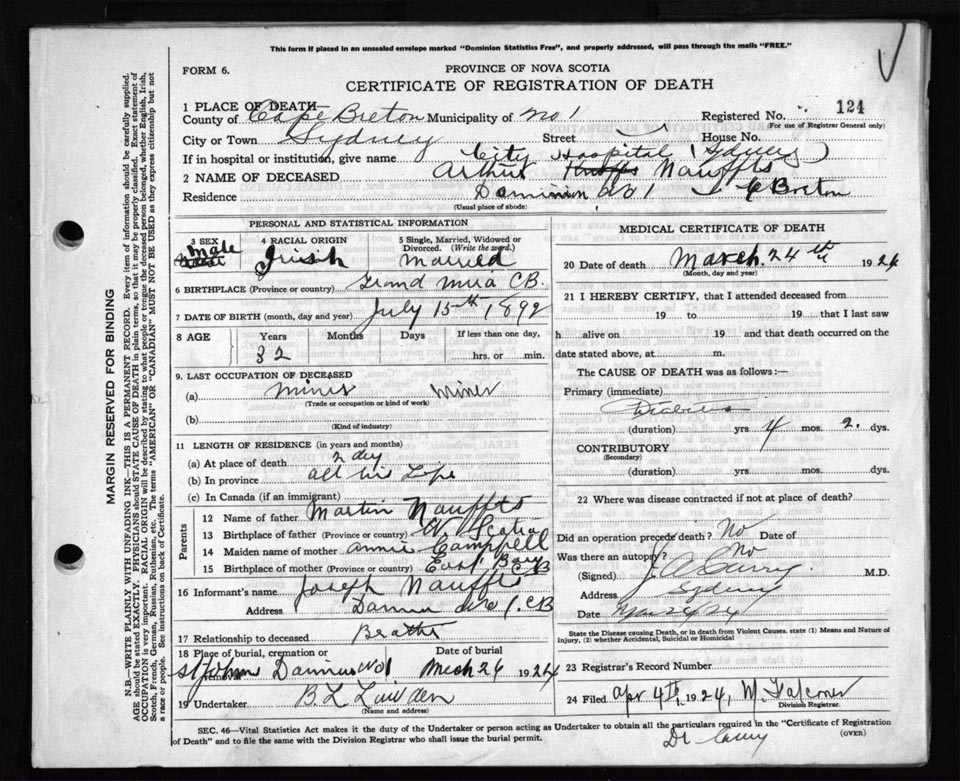 This form if placed in an unsealed envelope marked "Dominion Statistics Free", and properly addressed, will pass through the mails "FREE."
FORM 6.
PROVINCE OF NOVA SCOTIA
CERTIFICATE OF REGISTRATION OF DEATH
1 PLACE OF DEATH—
County of Cape Breton Municipality of No 1 Registered No. 124
(For use of Registrar General only)
City or Town Sydney Street House No
If in hospital or institution, give name City Hospital (Sydney)
2 NAME OF DECEASED Arthur Nauffts
Residence Dominion No 1 C Breton
(Usual place of abode)
PERSONAL AND STATISTICAL INFORMATION
3 SEX Male
4 RACIAL ORIGIN Irish
5 Single, Married, Widowed or Divorced. (Write the word.) Married
6 BIRTHPLACE (Province or country) Grand Mira C.B.
7 DATE OF BIRTH (month, day and year) July 15th 1892
8 AGE Years Months Days If less than one day,
32 hrs. or min.
9. LAST OCCUPATION OF DECEASED
(a) Miner Miner
(Trade or occupation or kind of work)
(b)
(Kind of industry)
11 LENGTH OF RESIDENCE (in years and months)
(a) At place of death 2 day
(b) In province all his Life
(c) In Canada (if an immigrant)
Parents
12 Name of father Martin Nauffts
13 Birthplace of father (Province or country) N. Scotia
14 Maiden name of mother Annie Campbell
15 Birthplace of mother (Province or country) East Bay C B
16 Informant's name Joseph Nauffts
Address No 1. CB
17 Relationship to deceased Brother
18 Place of burial, cremation or Date of burial
St John No 1 Mch 26 1924
19 Undertaker B. L.
(Name and address)
MEDICAL CERTIFICATE OF DEATH
20 Date of death March 24th 1924
(Month, day and year)
21 I HEREBY CERTIFY, that I attended deceased from
19 to 19 that I last saw
h alive on 19 and that death occurred on the
date stated above, at m.
The CAUSE OF DEATH was as follows:—
Primary (immediate)
Diabetes
(duration) yrs. 4 mos. 2. dys.
CONTRIBUTORY
(Secondary)
(duration) yrs. mos. dys.
22 Where was disease contracted if not at place of death?
Did an operation precede death? No Date of
Was there an autopsy? No
(Signed) M.D.
Address Sydney
Date
State the Disease causing Death, or in death from Violent Causes, state (1) Means and Nature of Injury, (2) whether Accidental, Suicidal or Homicidal
23 Registrar's Record Number
24 Filed Apr 4th, 1924, M Falconer
Division Registrar.
SEC. 46—Vital Statistics Act makes it the duty of the Undertaker or person acting as Undertaker to obtain all the particulars required in the "Certificate of Registration
of Death" and to file the same with the Division Registrar who shall issue the burial permit.
(OVER)
MARGIN RESERVED FOR BINDING
N.B.—WRITE PLAINLY WITH UNFADING INK—THIS IS A PERMANENT RECORD. Every item of information should be carefully supplied.
AGE should be stated EXACTLY. PHYSICIANS should STATE CAUSE OF DEATH in plain terms, so that it may be properly classified. Exact statement of
OCCUPATION is very important. RACIAL ORIGIN will be described by stating to what people or tongue the deceased person belonged, whether English, Irish,
Scotch, French, German, Russian, Ruthenian, etc. The terms "AMERICAN" OR "CANADIAN" MUST NOT BE USED as they express citizenship but not
a race or people. See instructions on back of Certificate.